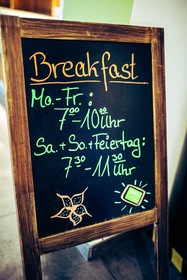 Breakfast
Mo.-Fr.:
7⁰⁰-10⁰⁰Uhr
Sa.+So.+Feiertag:
7³⁰-11³⁰Uhr